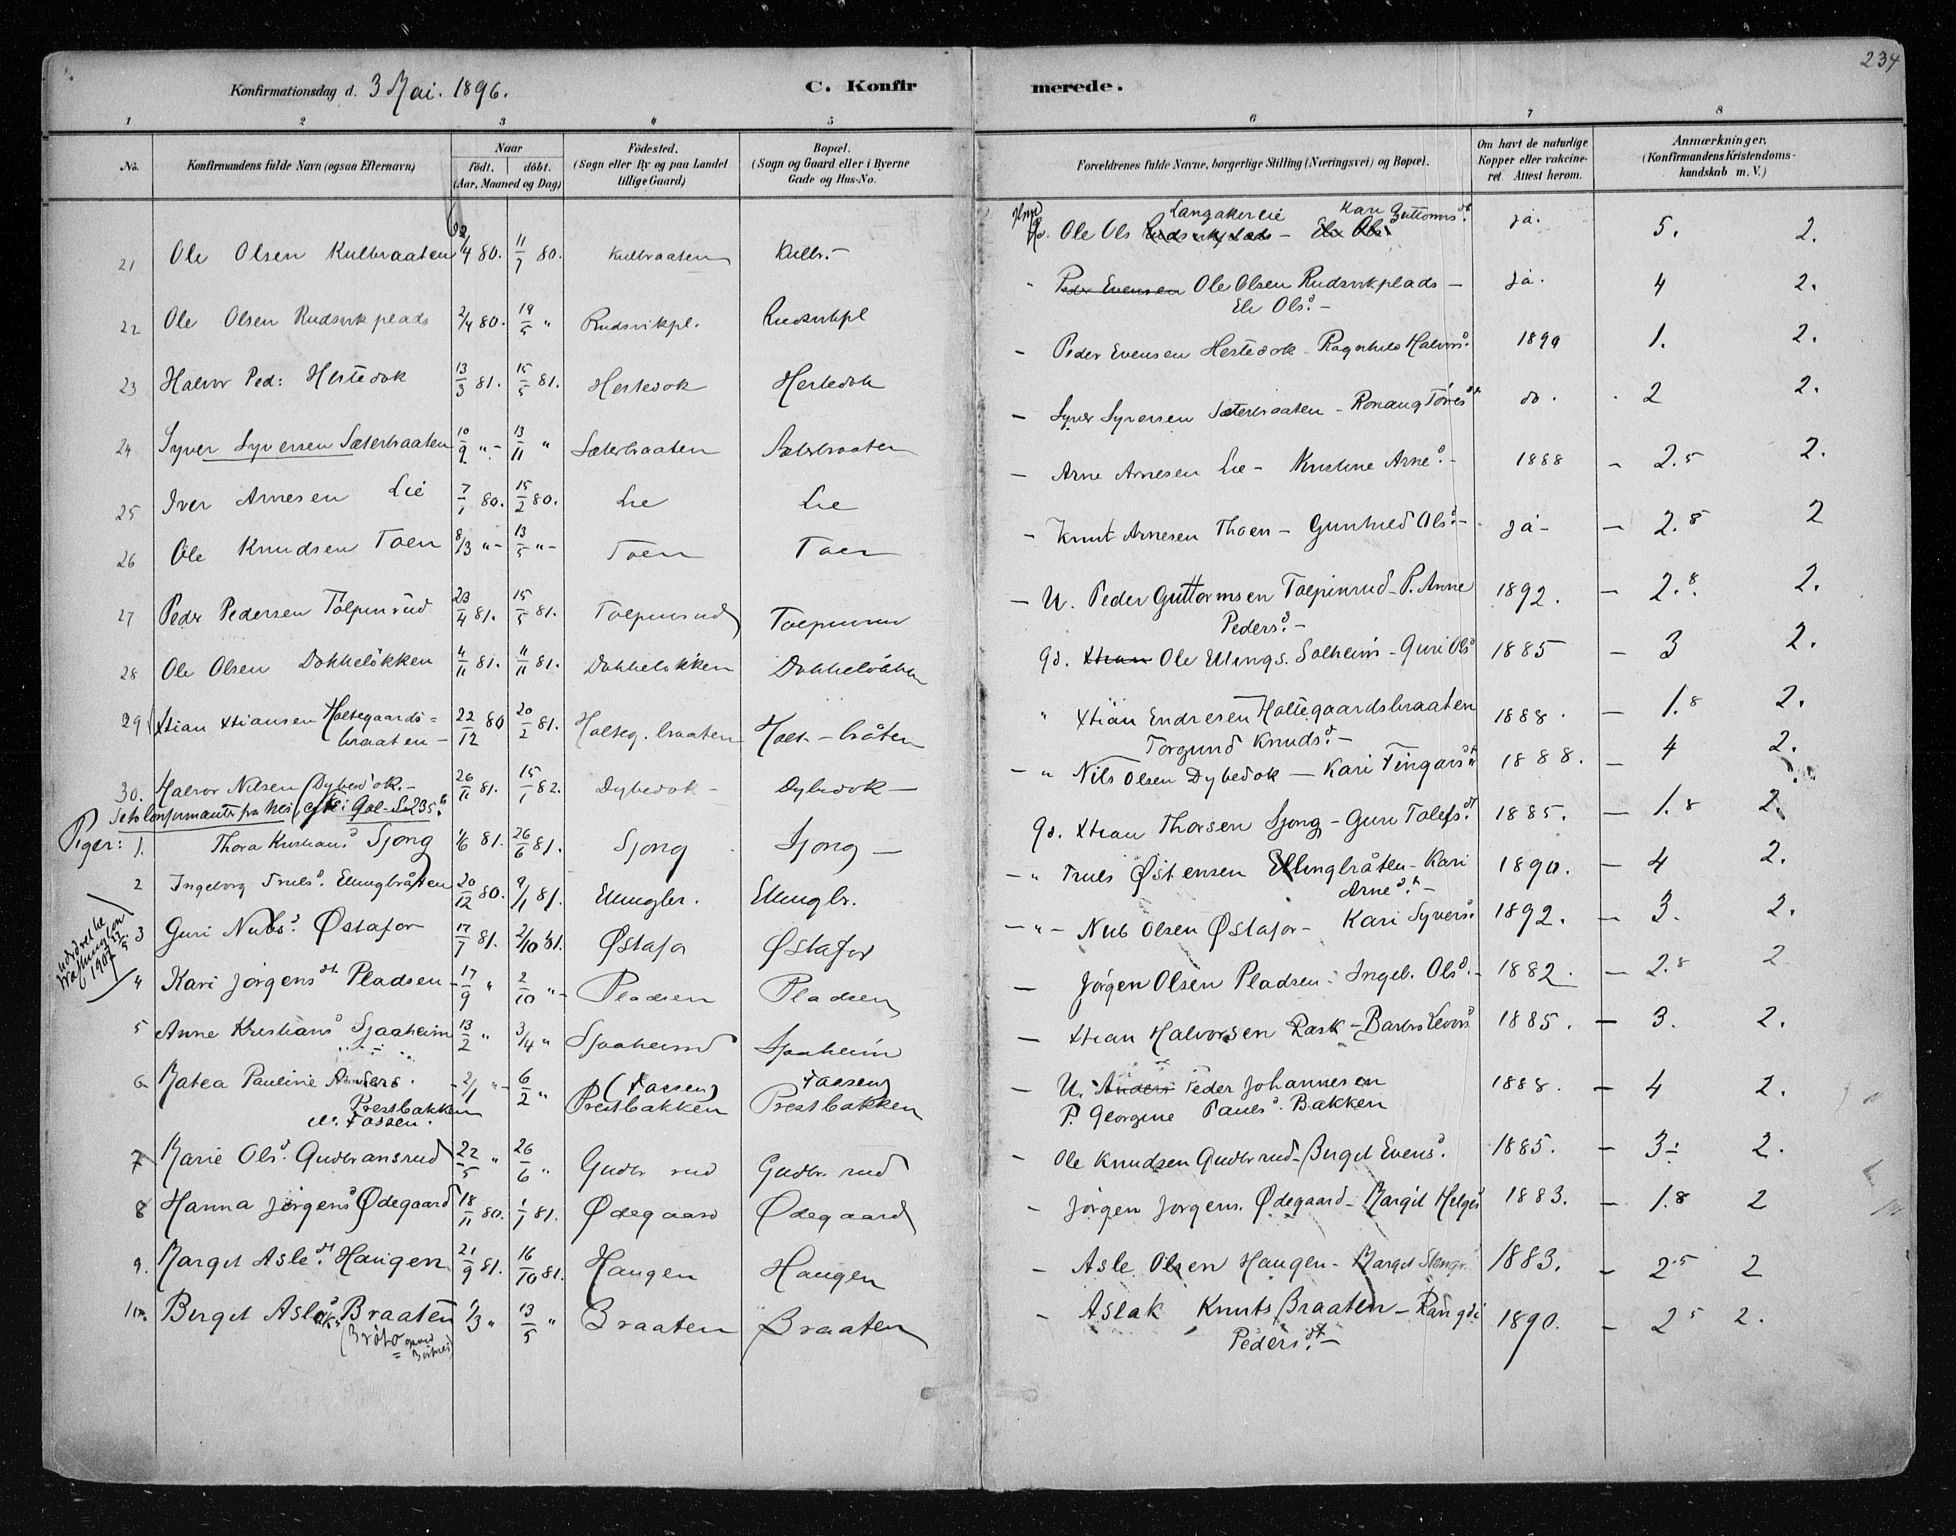 234
Konfirmationsdag d. 3 Mai. 1896. C. Konfirmerede.
1 2 3 4 5 6 7 8
No. Konfirmandens fulde Navn (ogsaa Efternavn) Naar født. døbt. (Aar, Maaned og Dag) Födested. (Sogn eller By og paa Landet tillige Gaard) Bopæl. (Sogn og Gaard eller i Byerne Gade og Hus-No. Forældrenes fulde Navne, borgerlige Stilling (Næringsvei) og Bopæl. Om havt de naturlige Kopper eller vakcineret Attest herom. Anmærkninger, (Konfirmandens Kristendomskundskab m. V.)
21 Ole Olsen Kulbraaten 4 80. 11/7 80. Kulbraaten Kulbr.- Ole Ols Langakereie Kari Guttorms dt. ja. 5. 2.
22 Ole Olsen Rudsvikplads 2/4 80. 19/5 " Rudsvikpl. Rudsvikpl " Peder Evensen Ole Olsen Rudsvikplads - Eli Olsd. - ja. 4 2.
23 Halvor Ped: Hestedok 13/3 81. 15/5 81. Hestedok Hestedok - Peder Evensen Hestedok - Ragnhild Halvorsd. 1890 1. 2.
24 Syver Syversen Sæterbraaten 10/9 "- 13/11 " Sæterbraaten Sæterbraaten - Syver Syversen Sæterbraaten - Ronaug Tores dt do. 2 2.
25 Iver Arnesen Lie 7/1 80. 15/2 80. Lie Lie - Arne Arnesen Lie - Kristine Arned. - 1888 - 2.5 2.
26 Ole Knudsen Toen 8/3 "- 13/5 "- Toen Toen - Knut Arnesen Thoen - Gunhild Olsd. - ja - - 2.8 2
27 Peder Pedersen Tolpinrud 23/4 81. 15/5 81. Tolpinrud Tolpinrud - U. Peder Guttormsen Tolpinrud - P. Anne Pedersd. - 1892. - 2.8. 2.
28 Ole Olsen Dokkeløkken 4/11 81. 11/11 81. Dokkeløkken Dokkeløkken Gd. Xtian Ole Ellings. Solheim - Guri Olsd 1885 - 3 2.
29 Xtian Xtiansen Holtegaardsbraaten - 22/12 80 20/2 81. Holteg. braaten Holt. - bråten " Xtian Endresen Holtegaardsbraaten Torgund Knudsd. - 1888. - 1.8 2.
30. Halvor Nilsen Dybedok. - 26/11 81. 15/1 82. Dybedok - Dybedok - - " Nils Olsen Dybedok - Kari Fingarsdt 1888. - 4 2.
Piger: 1. Thora Kristiansd Sjong 1/6 81. 26/6 81. Sjong Sjong - Gd. Xtian Thorsen Sjong - Guri Tolefsdt. 1885. - 1.8 2.
2 Ingeborg Trulsd. Ellingbråten 20/12 80. 9/1 81. Ellingbr. Ellingbr. - " Truls Østensen Ellingbråten - Kari Arned.t - 1890. - 4 2.
3 Guri Nilsd Østafor 17/7 81. 2/10 81. Østafor Østafor - " - Nils Olsen Østafor - Kari Syvers. 1892. - 3. 2.
Washington 1907
4 Kari Jørgens dt. Pladsen - 17/9 " 2/10 " - Pladsen Pladsen - Jørgen Olsen Pladsen - Ingeb. Olsd. - 1882. - 2.8 2
5 Anne Kristiansd Sjaaheim 13/2 " 3/4 " Sjaaheim Sjaaheim - Xtian Halvorsen Rask - Barbro Levorsd 1885. - 3. 2.
6 Matea Pauline Anders. Prestbakken Fossen. - 2/1 "- 6/2 " (Fossen) Prestbakken Fossen Prestbakken - U. Anders Peder Johannesen P. Georgine Paulsd. Bakken 1888. - 4 2.
7 Marie Olsd. Gudbransrud 22/5 " 26/6 " Gudbr rud Gudbr. rud - Ole Knudsen Gudbr rud - Birgit Evensd. 1885. - 3 - 2.
8 Hanna Jørgensd Ødegaard 18/11 80. 1/1 81. Ødegaard Ødegaard - Jørgen Jorgens. Ødegaard - Margit Helgesd 1883. - 1.8 2
9. Margit Asle dt. Haugen 21/9 81. 16/10 81. Haugen Haugen - Asle Olsen Haugen - Margit 1883. - 2.5 2
10. Birgit Aslaksd Braaten 1/3 " 13/5 " Braaten Braaten - Aslak Knuts Braaten - Rangdi Pedersdt. - 1890. - 2 5 2.